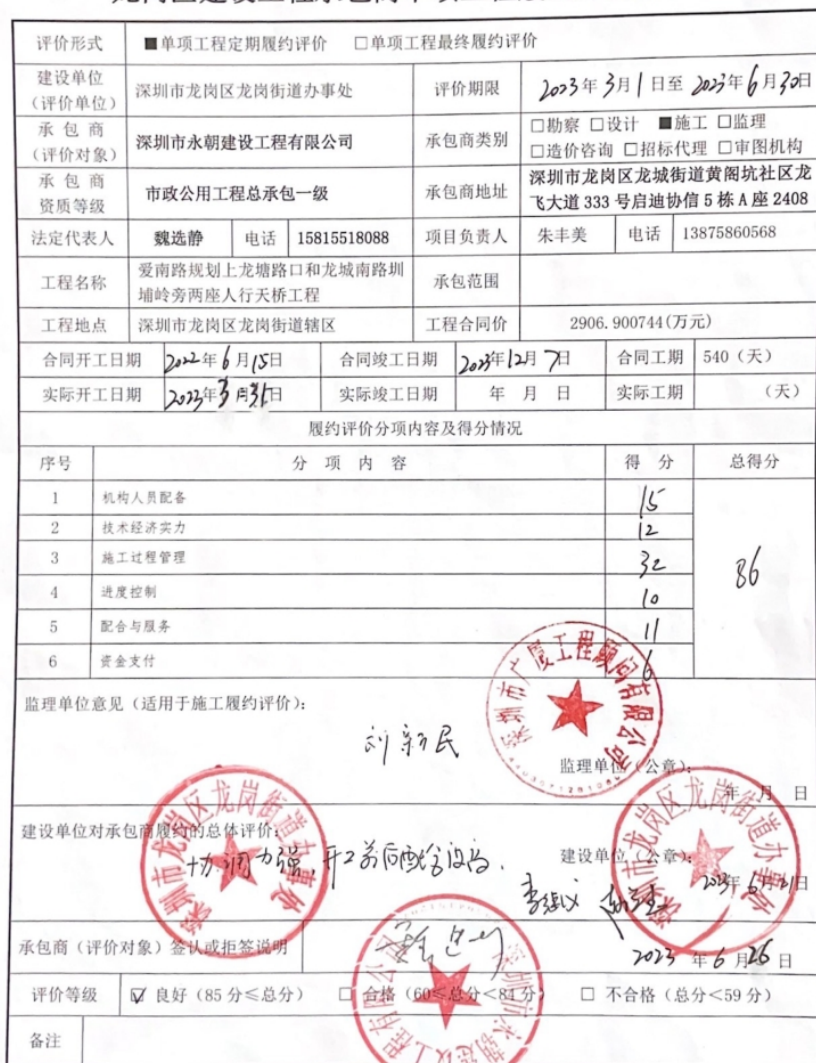 评价形式 ■单项工程定期履约评价 □单项工程最终履约评价
建设单位
（评价单位） 深圳市龙岗区龙岗街道办事处 评价期限 2023年3月1日至2023年6月30日
承包商
（评价对象） 深圳市永朝建设工程有限公司 承包商类别 □勘察 □设计 ■施工 □监理
□造价咨询 □招标代理 □审图机构
承包商
资质等级 市政公用工程总承包一级 承包商地址 深圳市龙岗区龙城街道黄阁坑社区龙
飞大道 333 号启迪协信 5 栋 A 座 2408
法定代表人 魏选静 电话 15815518088 项目负责人 朱丰美 电话 13875860568
工程名称 爱南路规划上龙塘路口和龙城南路圳
埔岭旁两座人行天桥工程 承包范围
工程地点 深圳市龙岗区龙岗街道辖区 工程合同价 2906.900744(万元)
合同开工日期 2022年6月15日 合同竣工日期 2023年12月7日 合同工期 540（天）
实际开工日期 2023年3月31日 实际竣工日期 年 月 日 实际工期 （天）
履约评价分项内容及得分情况
序号 分项内容 得分 总得分
1 机构人员配备 15
2 技术经济实力 12
3 施工过程管理 32
4 进度控制 10
5 配合与服务 11
6 资金支付 6
86
监理单位意见（适用于施工履约评价）：
深圳市广厦工程顾问有限公司
刘新民
监理单位（公章）：
年 月 日
建设单位对承包商履约的总体评价：
深圳市龙岗区龙岗街道办事处
协调力强，开工前后配合
建设单位（公章）：
深圳市龙岗区龙岗街道办事处
2023年6月21日
承包商（评价对象）签认或拒签说明
深圳市永朝建设工程有限公司
2023年6月26日
评价等级 ☑ 良好（85 分≤总分） □ 合格（60≤总分<84 分） □ 不合格（总分<59 分）
备注